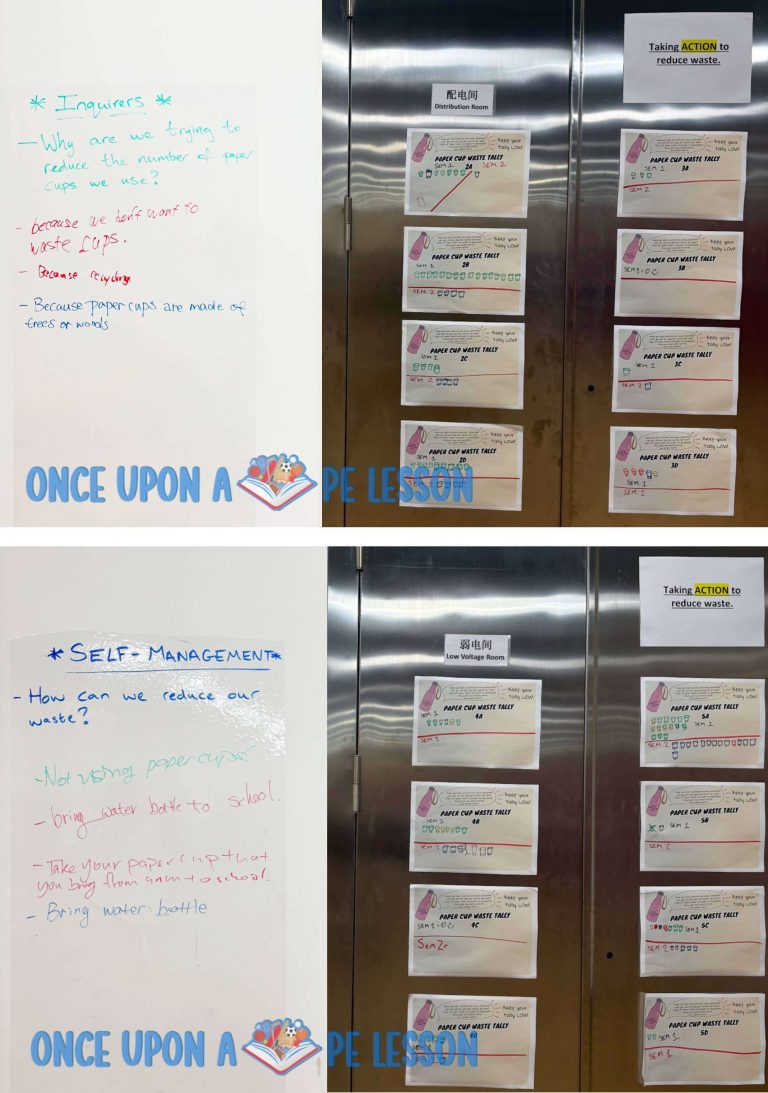 * Inquirers *
- Why are we trying to
reduce the number of paper
cups we use?
- because we don't want to
waste cups.
- Because recycling.
- Because paper cups are made of
trees or woods
配电间
Distribution Room
Taking ACTION to
reduce waste.
Keep your
tally LOW!
PAPER CUP WASTE TALLY
SEM 1
2A
SEM 2
Keep your
tally LOW!
PAPER CUP WASTE TALLY
SEM 1
2B
SEM 2
Keep your
tally LOW!
PAPER CUP WASTE TALLY
SEM 1
2C
SEM 2
Keep your
tally LOW!
PAPER CUP WASTE TALLY
SEM 1
2D
SEM 2
Keep your
tally LOW!
PAPER CUP WASTE TALLY
SEM 1
3A
SEM 2
Keep your
tally LOW!
PAPER CUP WASTE TALLY
SEM 1 = 0
3B
Keep your
tally LOW!
PAPER CUP WASTE TALLY
SEM 1
3C
SEM 2
Keep your
tally LOW!
PAPER CUP WASTE TALLY
3D
SEM 1
SEM 2
ONCE UPON A PE LESSON
* SELF-MANAGEMENT *
- How can we reduce our
waste?
- Not using paper cups!
- bring water bottle to school.
- Take your paper cup that
you bring from to school.
- Bring water bottle
弱电间
Low Voltage Room
Taking ACTION to
reduce waste.
Keep your
tally LOW!
PAPER CUP WASTE TALLY
SEM 1
4A
SEM 2
Keep your
tally LOW!
PAPER CUP WASTE TALLY
SEM 1
4B
SEM
Keep your
tally LOW!
PAPER CUP WASTE TALLY
SEM 1 = 0
4C
Sem 2
Keep your
tally LOW!
PAPER CUP WASTE TALLY
Keep your
tally LOW!
PAPER CUP WASTE TALLY
5A
SEM 1
SEM 2
Keep your
tally LOW!
PAPER CUP WASTE TALLY
5B
SEM 1
SEM 2
Keep your
tally LOW!
PAPER CUP WASTE TALLY
5C
SEM 1
SEM 2
Keep your
tally LOW!
PAPER CUP WASTE TALLY
5D
SEM 1
SEM 1
ONCE UPON A PE LESSON